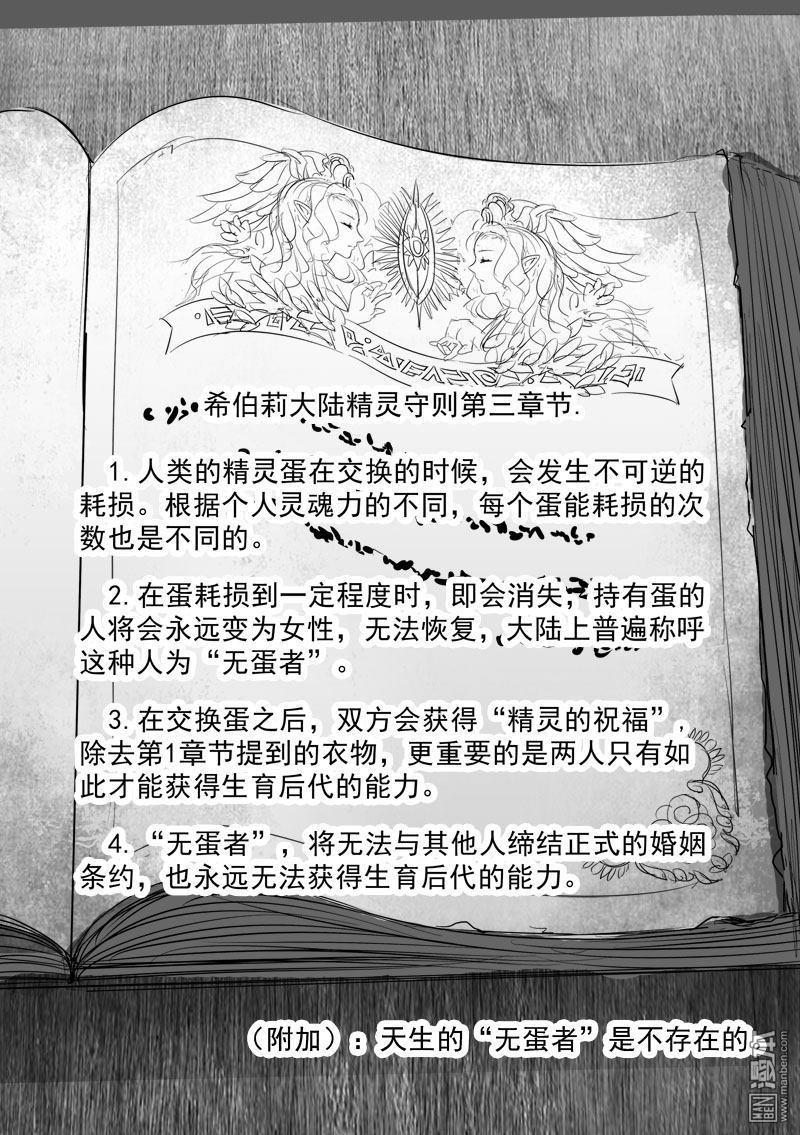 希伯莉大陆精灵守则第三章节.
1.人类的精灵蛋在交换的时候，会发生不可逆的
耗损。根据个人灵魂力的不同，每个蛋能耗损的次
数也是不同的。
2.在蛋耗损到一定程度时，即会消失，持有蛋的
人将会永远变为女性，无法恢复，大陆上普遍称呼
这种人为“无蛋者”。
3.在交换蛋之后，双方会获得“精灵的祝福”，
除去第1章节提到的衣物，更重要的是两人只有如
此才能获得生育后代的能力。
4.“无蛋者”，将无法与其他人缔结正式的婚姻
条约，也永远无法获得生育后代的能力。
（附加）：天生的“无蛋者”是不存在的
漫本
MAN
BEN
www.manben.com